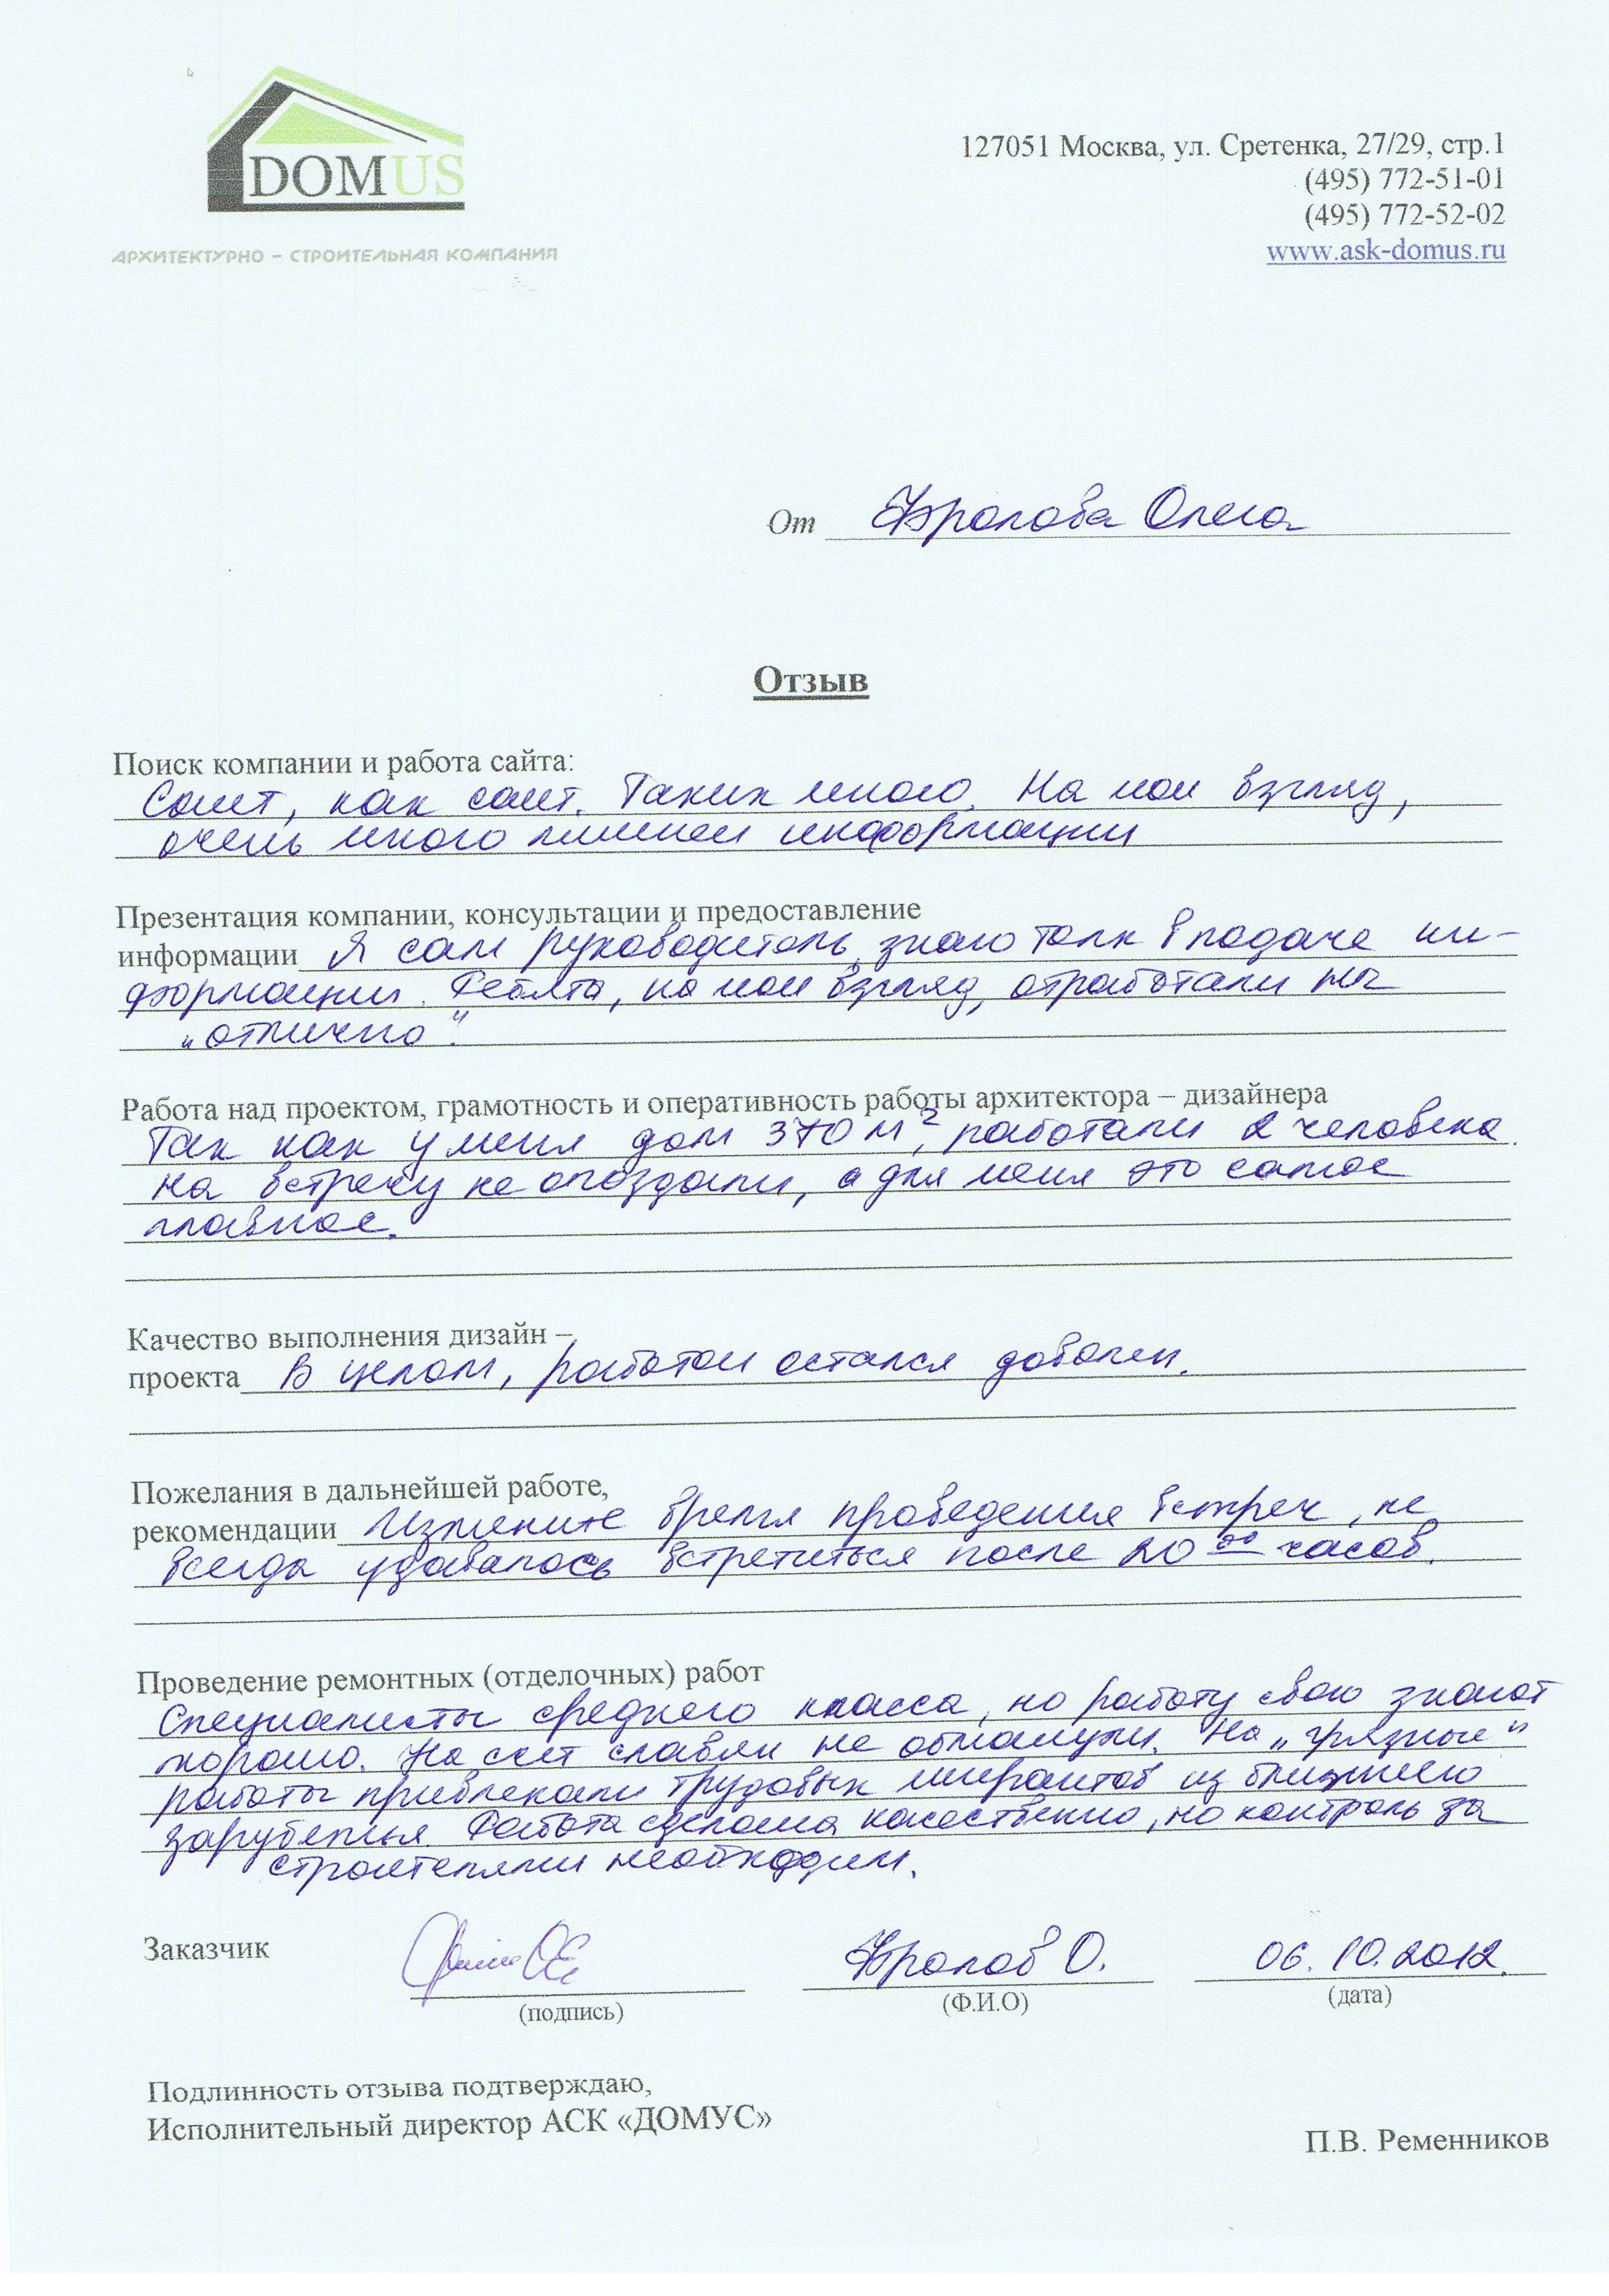 DOMUS
АРХИТЕКТУРНО – СТРОИТЕЛЬНАЯ КОМПАНИЯ
127051 Москва, ул. Сретенка, 27/29, стр.1
(495) 772-51-01
(495) 772-52-02
www.ask-domus.ru
От Фролова Олега
Отзыв
Поиск компании и работа сайта:
Сайт, как сайт. Таких много. На мой взгляд,
очень много лишней информации
Презентация компании, консультации и предоставление
информации Я сам руководитель, знаю толк в подаче ин-
формации. Ребята, на мой взгляд, отработали на
„отлично".
Работа над проектом, грамотность и оперативность работы архитектора – дизайнера
Так как у меня дом 370 м², работали 2 человека.
на встречу не опоздали, а для меня это самое
главное.
Качество выполнения дизайн –
проекта В целом, работой остался доволен.
Пожелания в дальнейшей работе,
рекомендации Измените время проведения встреч, не
всегда удавалось встретиться после 20 00 часов.
Проведение ремонтных (отделочных) работ
Специалисты среднего класса, но работу свою знают
хорошо. На счет славян не обманули. На „грязные"
работы привлекали трудовых мигрантов из ближнего
зарубежья. Работа сделана качественно, но контроль за
строителями необходим.
Заказчик Фролов О. 06.10.2012.
(подпись) (Ф.И.О) (дата)
Подлинность отзыва подтверждаю,
Исполнительный директор АСК «ДОМУС»
П.В. Ременников